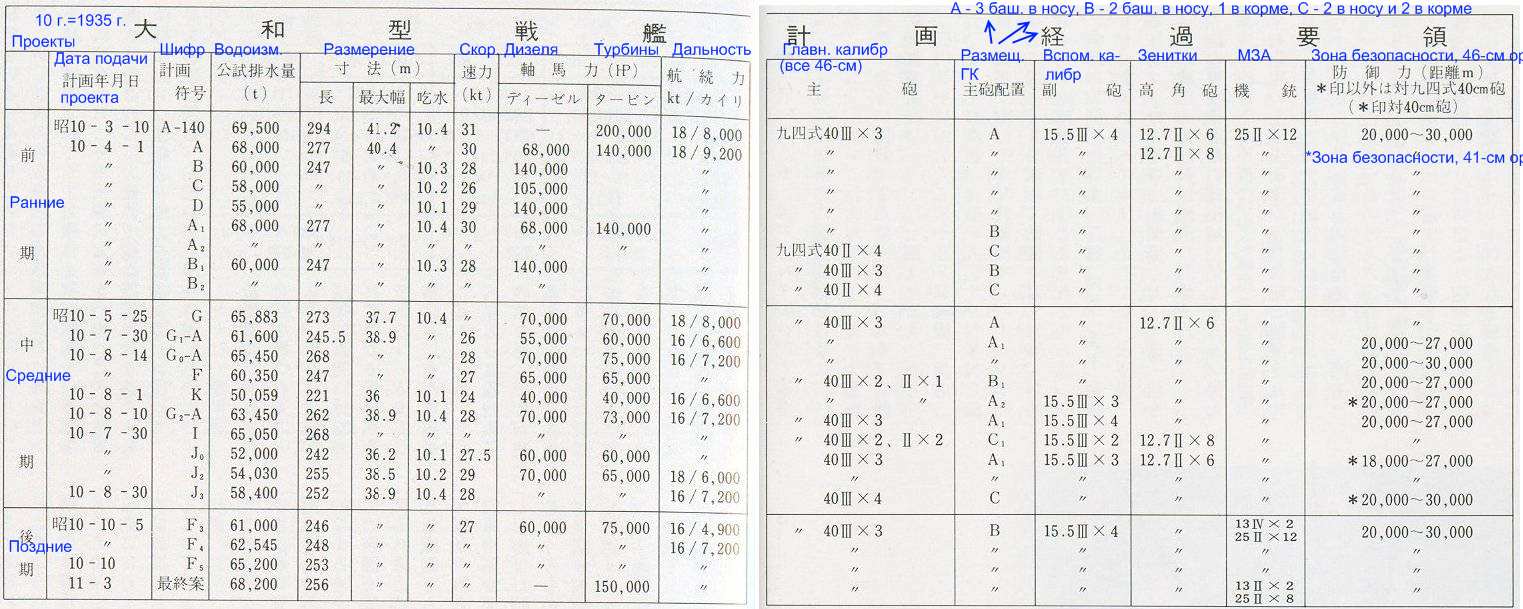 10 г.=1935 г.
大和型戦艦
Проекты
Дата подачи проекта
Шифр
Водоизм.
Размерение
Скор.
Дизеля
Турбины
Дальность
計画年月日 計画符号 公試排水量(t) 寸法(m) 速力(kt) 軸馬力(HP) 航続力 kt/カイリ
長 最大幅 吃水 ディーゼル タービン
前期
Ранние
昭10-3-10 A-140 69,500 294 41.2 10.4 31 — 200,000 18/8,000
10-4-1 A 68,000 277 40.4 〃 30 68,000 140,000 18/9,200
〃 B 60,000 247 〃 10.3 28 140,000 〃
〃 C 58,000 〃 〃 10.2 26 105,000 〃
〃 D 55,000 〃 〃 10.1 29 140,000 〃
〃 A₁ 68,000 277 〃 10.4 30 68,000 140,000 〃
〃 A₂ 〃 〃 〃 〃 〃 〃 〃 〃
〃 B₁ 60,000 247 〃 10.3 28 140,000 〃
〃 B₂ 〃 〃 〃 〃 〃 〃 〃
中期
Средние
昭10-5-25 G 65,883 273 37.7 10.4 〃 70,000 70,000 18/8,000
10-7-30 G₁-A 61,600 245.5 38.9 〃 26 55,000 60,000 16/6,600
10-8-14 G₀-A 65,450 268 〃 〃 28 70,000 75,000 16/7,200
〃 F 60,350 247 〃 〃 27 65,000 65,000 〃
10-8-1 K 50,059 221 36 10.1 24 40,000 40,000 16/6,600
10-8-10 G₂-A 63,450 262 38.9 10.4 28 70,000 73,000 16/7,200
10-7-30 I 65,050 268 〃 〃 〃 〃 〃 〃
〃 J₀ 52,000 242 36.2 10.1 27.5 60,000 60,000 〃
〃 J₂ 54,030 255 38.5 10.2 29 70,000 65,000 18/6,000
10-8-30 J₃ 58,400 252 38.9 10.4 28 〃 〃 16/7,200
後期
Поздние
昭10-10-5 F₃ 61,000 246 〃 〃 27 60,000 75,000 16/4,900
〃 F₄ 62,545 248 〃 〃 〃 〃 〃 16/7,200
10-10 F₅ 65,200 253 〃 〃 〃 〃 〃 〃
11-3 最終案 68,200 256 〃 〃 〃 — 150,000 〃
А - 3 баш. в носу, В - 2 баш. в носу, 1 в корме, С - 2 в носу и 2 в корме
計画経過要領
Главн. калибр (все 46-см)
Размещ. ГК
Вспом. калибр
Зенитки
МЗА
Зона безопасности, 46-см ор
主砲 主砲配置 副砲 高角砲 機銃 防御力(距離m)
*印以外は対九四式40cm砲
(*印対40cm砲)
九四式40Ⅲ×3 A 15.5Ⅲ×4 12.7Ⅱ×6 25Ⅱ×12 20,000~30,000
〃 〃 〃 12.7Ⅱ×8 〃 〃
*Зона безопасности, 41-см ор
〃 〃 〃 〃 〃 〃
〃 〃 〃 〃 〃 〃
〃 〃 〃 〃 〃 〃
〃 B 〃 〃 〃 〃
九四式40Ⅱ×4 C 〃 〃 〃 〃
〃 40Ⅲ×3 B 〃 〃 〃 〃
〃 40Ⅱ×4 C 〃 〃 〃 〃
〃 40Ⅲ×3 A 〃 12.7Ⅱ×6 〃 〃
〃 A₁ 〃 〃 〃 20,000~27,000
〃 〃 〃 〃 〃 20,000~30,000
〃 40Ⅲ×2、Ⅱ×1 B₁ 〃 〃 〃 20,000~27,000
〃 〃 A₂ 15.5Ⅲ×3 〃 〃 *20,000~27,000
〃 40Ⅲ×3 A₁ 15.5Ⅲ×4 〃 〃 20,000~27,000
〃 40Ⅲ×2、Ⅱ×2 C₁ 15.5Ⅲ×2 12.7Ⅱ×8 〃 〃
40Ⅲ×3 A₁ 15.5Ⅲ×3 12.7Ⅱ×6 〃 *18,000~27,000
〃 〃 〃 〃 〃 〃
40Ⅲ×4 C 〃 〃 〃 *20,000~30,000
〃 40Ⅲ×3 B 15.5Ⅲ×4 〃 13Ⅳ×2 25Ⅱ×12 20,000~30,000
〃 〃 〃 〃 〃 〃
〃 〃 〃 〃 〃 〃
〃 〃 〃 〃 13Ⅱ×2 25Ⅱ×8 〃